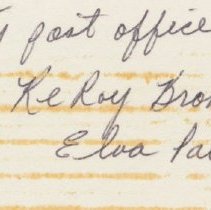 post office
LeRoy Bro
Elva Pa